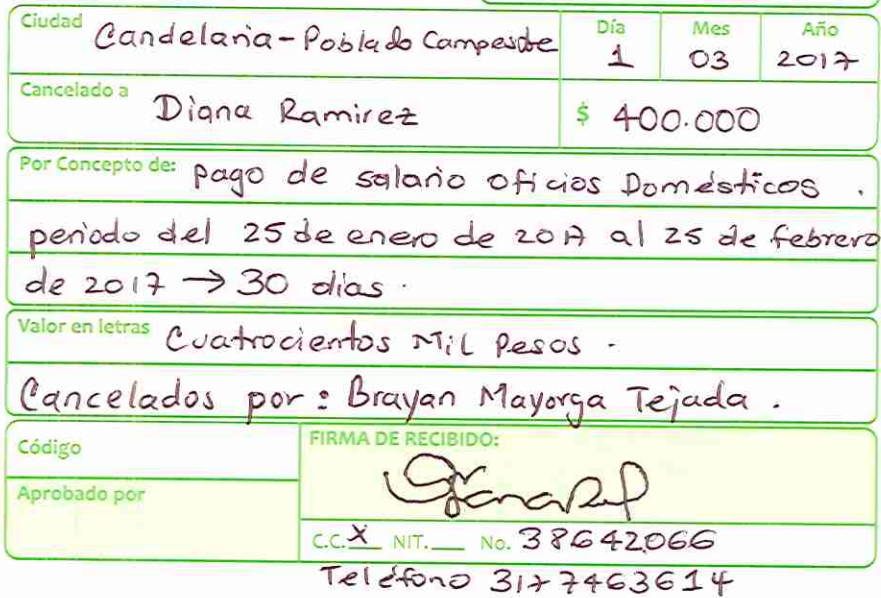 Ciudad Candelaria - Poblado Campestre
Día Mes Año
1 03 2017
Cancelado a Diana Ramirez $ 400.000
Por Concepto de: pago de salario oficios Domésticos.
periodo del 25 de enero de 2017 al 25 de febrero
de 2017 → 30 dias.
Valor en letras Cuatrocientos Mil Pesos.
Cancelados por: Brayan Mayorga Tejada.
Código
Aprobado por
FIRMA DE RECIBIDO:
C.C. X NIT. No. 38642066
Teléfono 3177463614